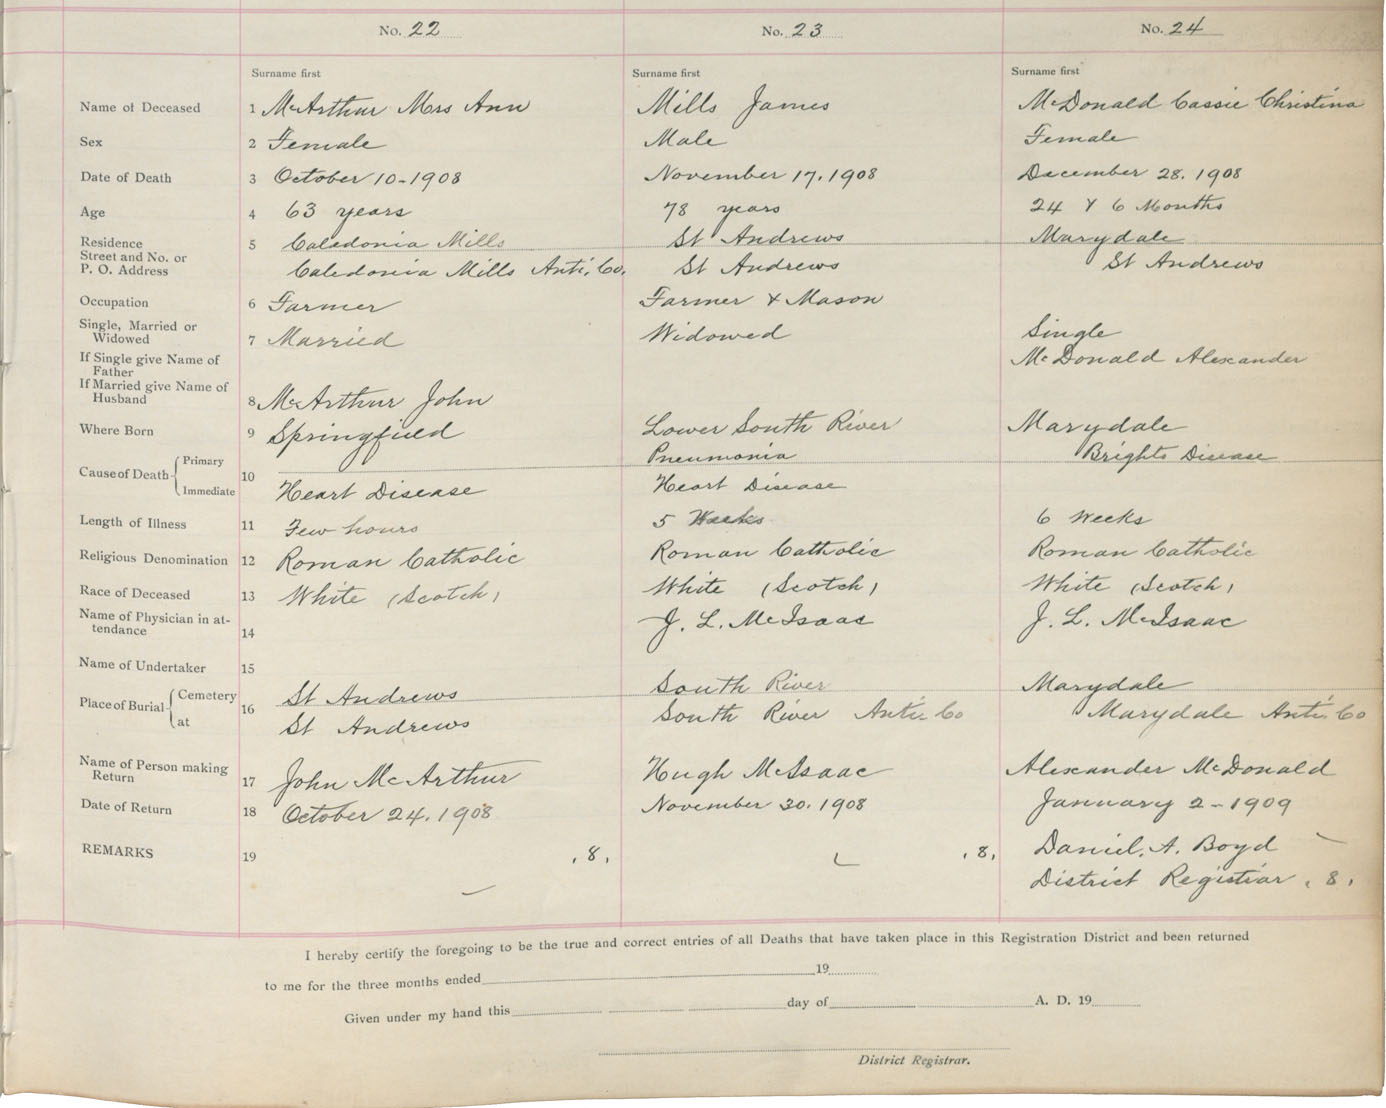 No. 22 No. 23 No. 24
Surname first Surname first Surname first
Name of Deceased 1 McArthur Mrs Ann Mills James McDonald Cassie Christina
Sex 2 Female Male Female
Date of Death 3 October 10-1908 November 17. 1908 December 28. 1908
Age 4 63 years 78 years 24 Y 6 Months
Residence 5 Caledonia Mills St Andrews Marydale
Street and No. or
P. O. Address Caledonia Mills Anti. Co. St Andrews St Andrews
Occupation 6 Farmer Farmer & Mason
Single, Married or
Widowed 7 Married Widowed Single
If Single give Name of
Father McDonald Alexander
If Married give Name of
Husband 8 McArthur John
Where Born 9 Springfield Lower South River Marydale
Cause of Death Primary 10 Pneumonia Brights Disease
Immediate Heart Disease Heart Disease
Length of Illness 11 Few hours 5 Weeks 6 Weeks
Religious Denomination 12 Roman Catholic Roman Catholic Roman Catholic
Race of Deceased 13 White (Scotch) White (Scotch) White (Scotch)
Name of Physician in at-
tendance 14 J. L. McIsaac J. L. McIsaac
Name of Undertaker 15
Place of Burial Cemetery 16 St Andrews South River Marydale
at St Andrews South River Anti. Co Marydale Anti. Co
Name of Person making
Return 17 John McArthur Hugh McIsaac Alexander McDonald
Date of Return 18 October 24. 1908 November 30. 1908 January 2-1909
REMARKS 19 , 8, , 8, Daniel. A. Boyd
District Registrar , 8,
I hereby certify the foregoing to be the true and correct entries of all Deaths that have taken place in this Registration District and been returned
to me for the three months ended 19
Given under my hand this day of A. D. 19
District Registrar.